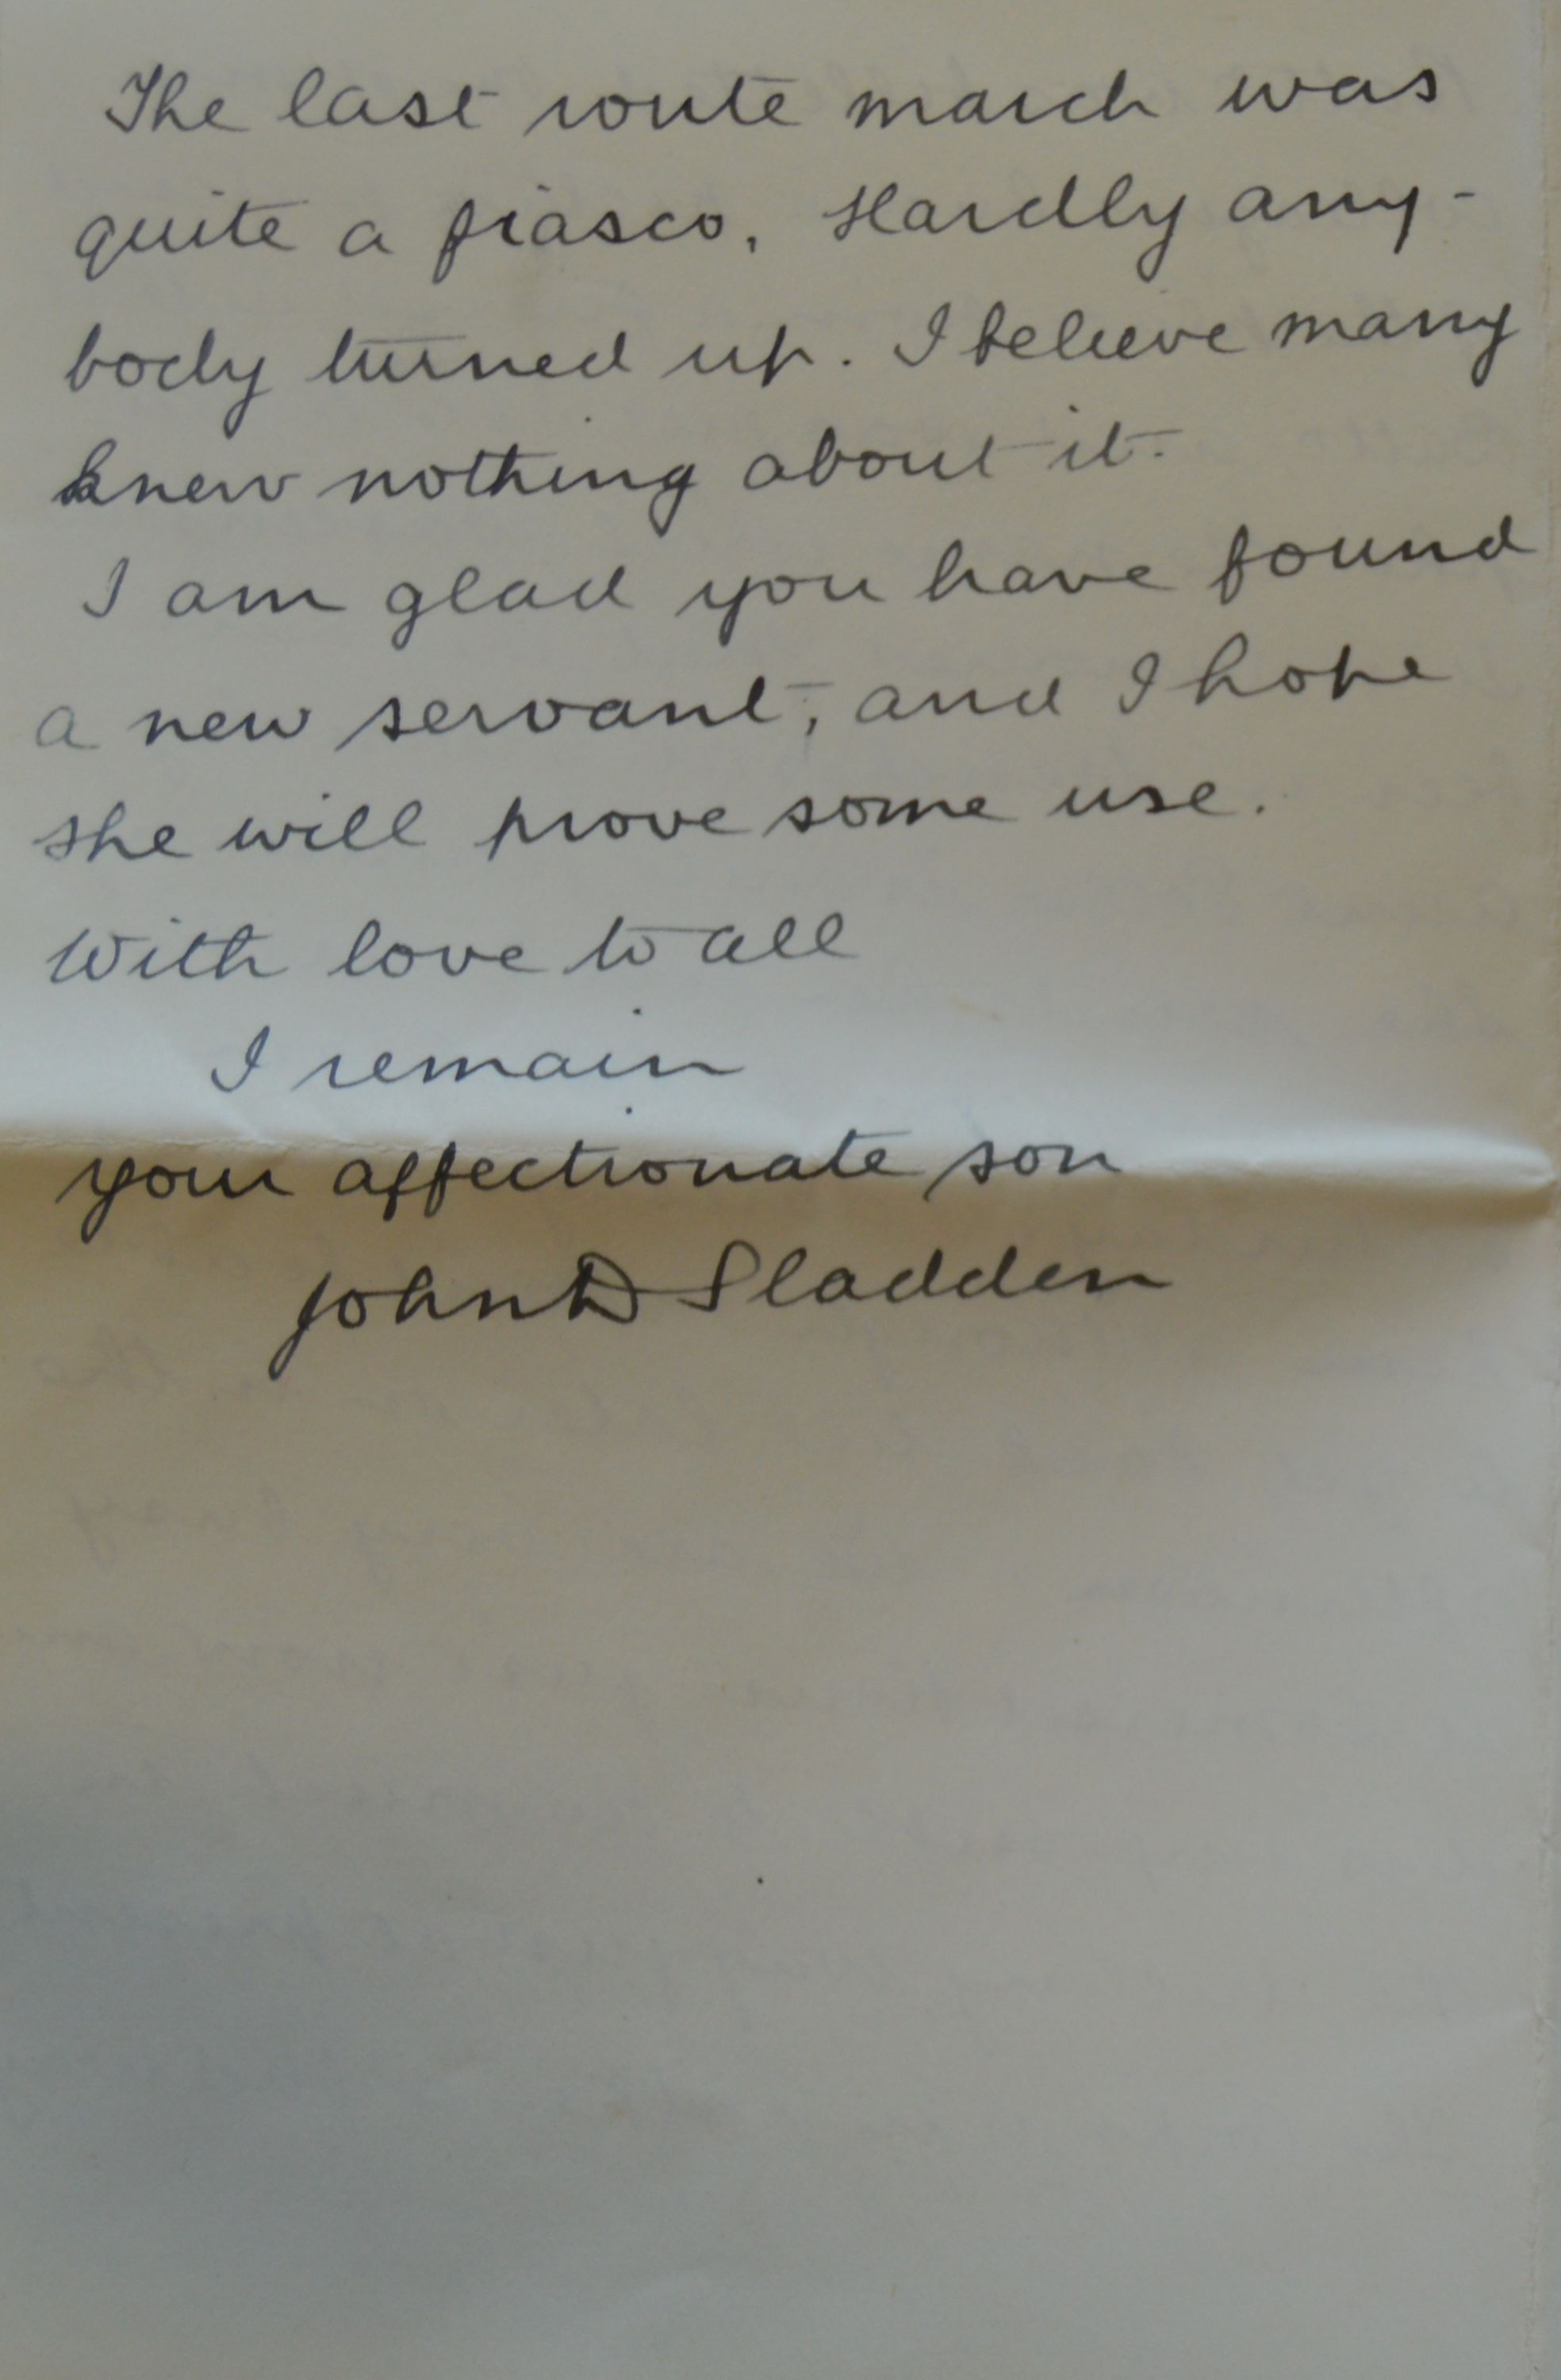 The last route march was
quite a fiasco. Hardly any-
body turned up. I believe many
knew nothing about it.
I am glad you have found
a new servant, and I hope
she will prove some use.
With love to all
I remain
your affectionate son
John D Sladden